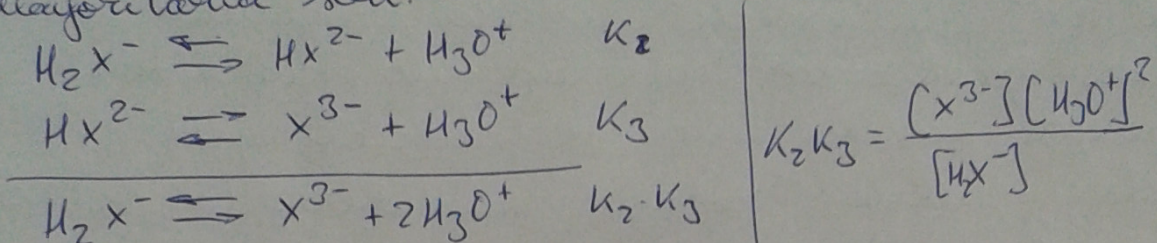 H₂X⁻ ⇌ HX²⁻ + H₃O⁺ K₂
HX²⁻ ⇌ X³⁻ + H₃O⁺ K₃
H₂X⁻ ⇌ X³⁻ + 2H₃O⁺ K₂·K₃
K₂K₃ = [X³⁻][H₃O⁺]² / [H₂X⁻]